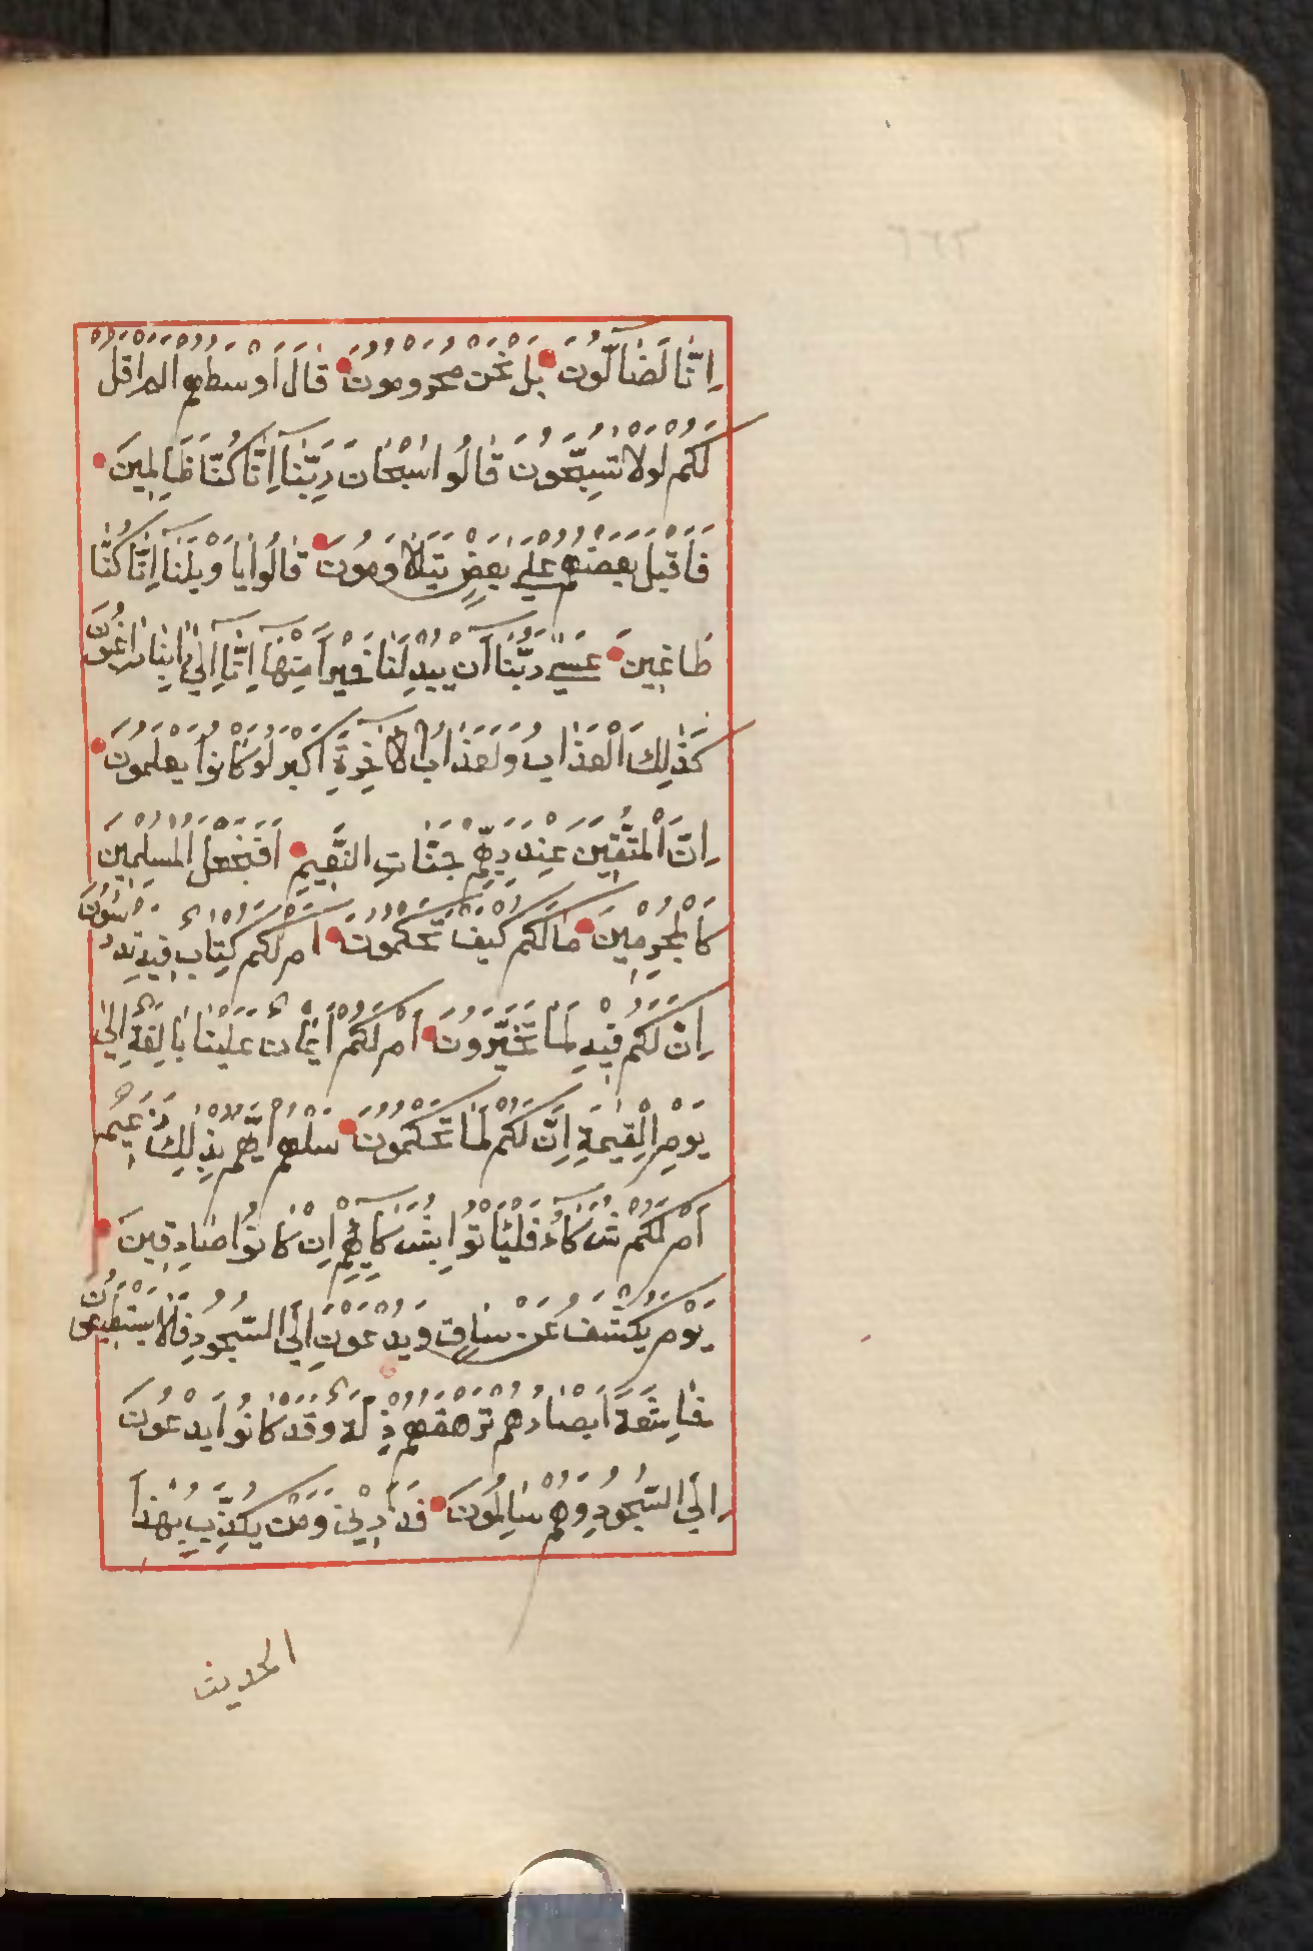 اِنَّا لَضَالُّونَ بَلْ نَحْنُ مَحْرُومُونَ قَالَ اَوْسَطُهُمْ اَلَمْ اَقُلْ
لَكُمْ لَوْلَا تُسَبِّحُونَ قَالُوا سُبْحَانَ رَبِّنَا اِنَّا كُنَّا ظَالِمِينَ
فَاَقْبَلَ بَعْضُهُمْ عَلٰى بَعْضٍ يَتَلَاوَمُونَ قَالُوا يَا وَيْلَنَا اِنَّا كُنَّا
طَاغِينَ عَسٰى رَبُّنَا اَنْ يُبْدِلَنَا خَيْرًا مِنْهَا اِنَّا اِلٰى رَبِّنَا رَاغِبُونَ
كَذٰلِكَ الْعَذَابُ وَلَعَذَابُ الْاٰخِرَةِ اَكْبَرُ لَوْ كَانُوا يَعْلَمُونَ
اِنَّ الْمُتَّقِينَ عِنْدَ رَبِّهِمْ جَنَّاتِ النَّعِيمِ اَفَنَجْعَلُ الْمُسْلِمِينَ
كَالْمُجْرِمِينَ مَا لَكُمْ كَيْفَ تَحْكُمُونَ اَمْ لَكُمْ كِتَابٌ فِيهِ تَدْرُسُونَ
اِنَّ لَكُمْ فِيهِ لَمَا تَخَيَّرُونَ اَمْ لَكُمْ اَيْمَانٌ عَلَيْنَا بَالِغَةٌ اِلٰى
يَوْمِ الْقِيٰمَةِ اِنَّ لَكُمْ لَمَا تَحْكُمُونَ سَلْهُمْ اَيُّهُمْ بِذٰلِكَ زَعِيمٌ
اَمْ لَهُمْ شُرَكَاءُ فَلْيَأْتُوا بِشُرَكَائِهِمْ اِنْ كَانُوا صَادِقِينَ
يَوْمَ يُكْشَفُ عَنْ سَاقٍ وَيُدْعَوْنَ اِلَى السُّجُودِ فَلَا يَسْتَطِيعُونَ
خَاشِعَةً اَبْصَارُهُمْ تَرْهَقُهُمْ ذِلَّةٌ وَقَدْ كَانُوا يُدْعَوْنَ
اِلَى السُّجُودِ وَهُمْ سَالِمُونَ فَذَرْنِي وَمَنْ يُكَذِّبُ بِهٰذَا
الحديث